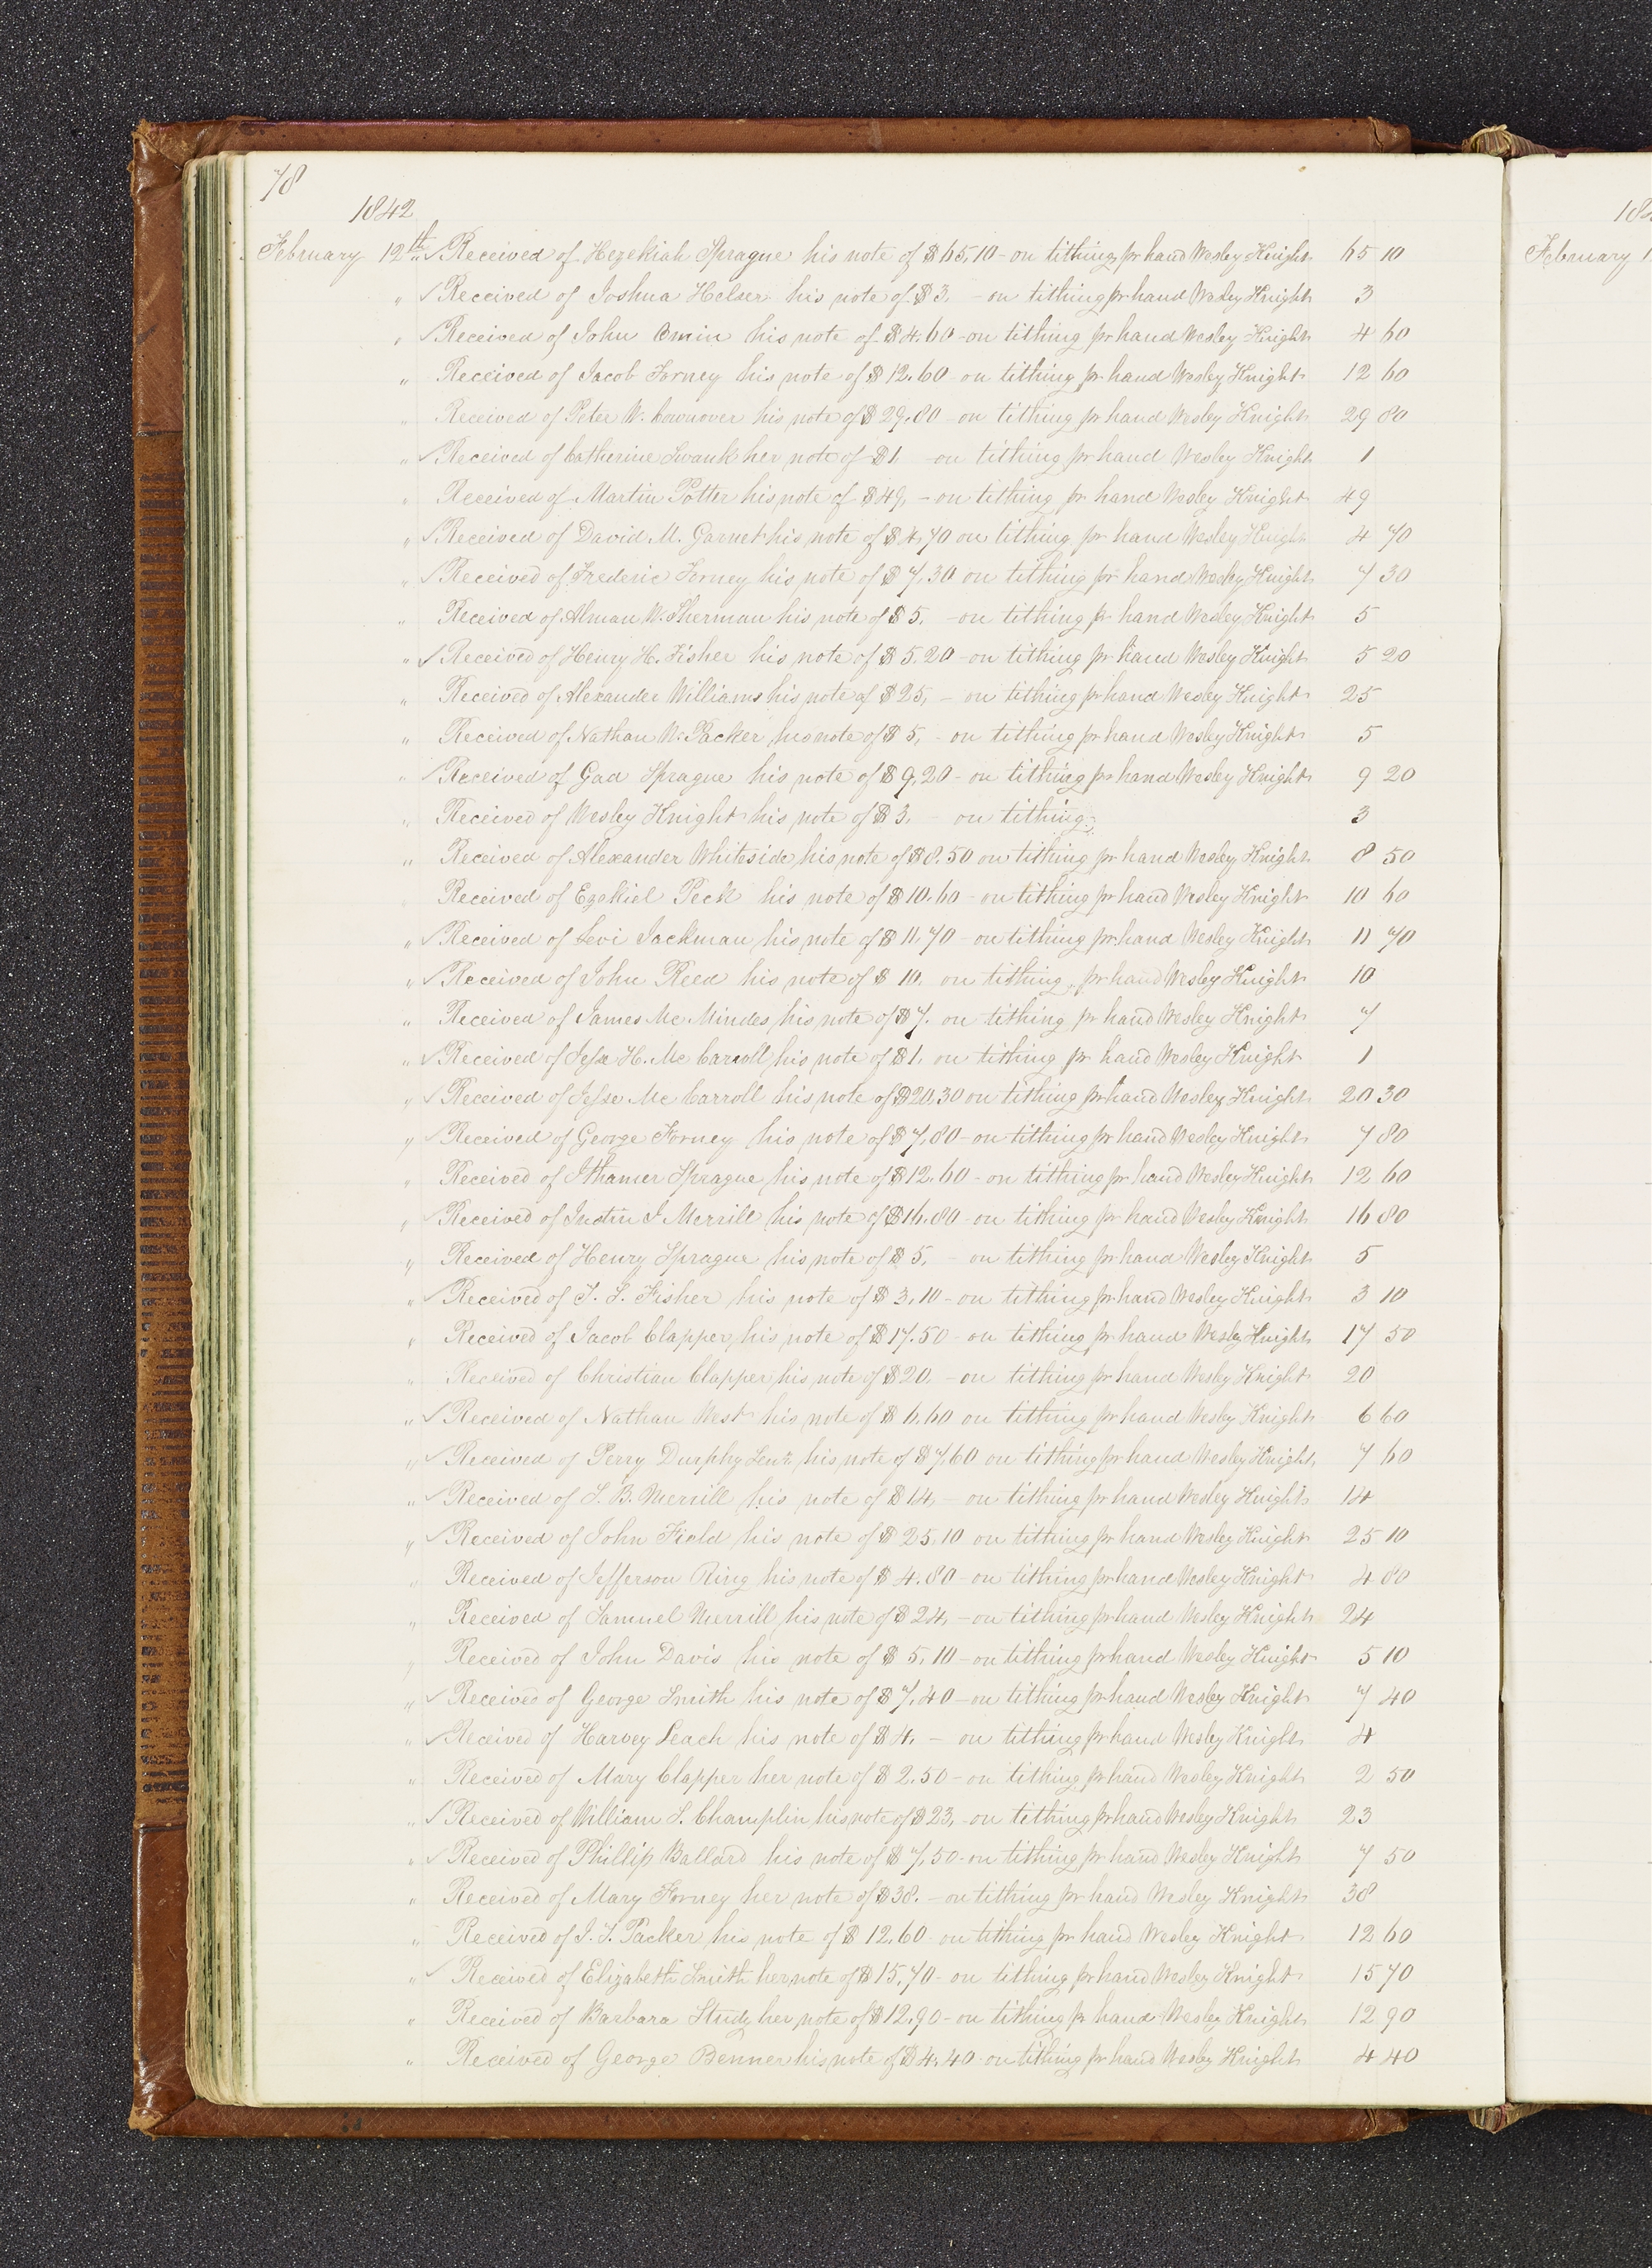 78
1842
February 12th „ ✓ Received of Hezekiah Sprague his note of $65,10 - on tithing pr hand Wesley Knight 65 10
„ ✓ Received of Joshua Helser his note of $3, - on tithing pr hand Wesley Knight 3
„ ✓ Received of John his note of $4.60 - on tithing pr hand Wesley Knight 4 60
„ Received of Jacob Forney his note of $12.60 - on tithing pr hand Wesley Knight 12 60
„ Received of Peter W. Cownover his note of $29.80 - on tithing pr hand Wesley Knight 29 80
„ ✓ Received of Catherine Swank her note of $1, - on tithing pr hand Wesley Knight 1
„ Received of Martin Potter his note of $49, - on tithing pr hand Wesley Knight 49
„ ✓ Received of David M. Garnet his note of $4,70 on tithing pr hand Wesley Knight 4 70
„ ✓ Received of Frederic Forney his note of $7,30 on tithing pr hand Wesley Knight 7 30
„ Received of Alman W. Sherman his note of $5, - on tithing pr hand Wesley Knight 5
„ ✓ Received of Henry H. Fisher his note of $5.20 - on tithing pr hand Wesley Knight 5 20
„ Received of Alexander Williams his note of $25, - on tithing pr hand Wesley Knight 25
„ Received of Nathan W. Packer his note of $5, - on tithing pr hand Wesley Knight 5
„ ✓ Received of Gad Sprague his note of $9,20 - on tithing pr hand Wesley Knight 9 20
„ Received of Wesley Knight his note of $3, - on tithing 3
„ Received of Alexander Whiteside his note of $8.50 on tithing pr hand Wesley Knight 8 50
Received of Ezekiel Peck his note of $10.60 - on tithing pr hand Wesley Knight 10 60
„ ✓ Received of Levi Jackman his note of $11,70 - on tithing pr hand Wesley Knight 11 70
„ ✓ Received of John Reed his note of $10. on tithing, pr hand Wesley Knight 10
„ Received of James Mc Mindes his note of $7. on tithing pr hand Wesley Knight 7
„ ✓ Received of Jesse H. Mc Carroll his note of $1, on tithing pr hand Wesley Knight 1
„ ✓ Received of Jesse Mc Carroll his note of $20,30 on tithing pr hand Wesley Knight 20 30
„ ✓ Received of George Forney his note of $7,80 - on tithing pr hand Wesley Knight 7 80
„ Received of Ithamer Sprague his note of $12.60 - on tithing pr hand Wesley Knight 12 60
„ ✓ Received of Justin J Merrill his note of $16.80 - on tithing pr hand Wesley Knight 16 80
„ Received of Henry Sprague his note of $5, - on tithing pr hand Wesley Knight 5
„ ✓ Received of J. S. Fisher his note of $3,10 - on tithing pr hand Wesley Knight 3 10
„ Received of Jacob Clapper his note of $17.50 - on tithing pr hand Wesley Knight 17 50
„ Received of Christian Clapper his note of $20, - on tithing pr hand Wesley Knight 20
„ ✓ Received of Nathan West his note of $6.60 on tithing pr hand Wesley Knight 6 60
„ ✓ Received of Perry Durphy Senr his note of $7,60 on tithing pr hand Wesley Knight, 7 60
„ ✓ Received of S. B. Merrill his note of $14, - on tithing pr hand Wesley Knight 14
„ ✓ Received of John Field his note of $25,10 on tithing pr hand Wesley Knight 25 10
„ Received of Jefferson Ring his note of $4.80 - on tithing pr hand Wesley Knight 4 80
„ Received of Samuel Merrill his note of $24, - on tithing pr hand Wesley Knight 24
„ Received of John Davis his note of $5,10 - on tithing pr hand Wesley Knight 5 10
„ ✓ Received of George Smith his note of $7,40 - on tithing pr hand Wesley Knight 7 40
„ ✓ Received of Harvey Leach his note of $4. - on tithing pr hand Wesley Knight 4
„ Received of Mary Clapper her note of $2.50 - on tithing pr hand Wesley Knight 2 50
„ ✓ Received of William S. Champlin his note of $23, - on tithing pr hand Wesley Knight 23
„ ✓ Received of Phillip Ballard his note of $7,50 - on tithing pr hand Wesley Knight 7 50
„ Received of Mary Forney her note of $38. - on tithing pr hand Wesley Knight 38
„ Received of J. J. Packer his note of $12,60 - on tithing pr hand Wesley Knight 12 60
„ ✓ Received of Elizabeth Smith her note of $15,70 - on tithing pr hand Wesley Knight 15 70
„ Received of Barbara Study her note of $12,90 - on tithing pr hand Wesley Knight 12 90
„ Received of George Benner his note of $4,40 on tithing pr hand Wesley Knight 4 40
February